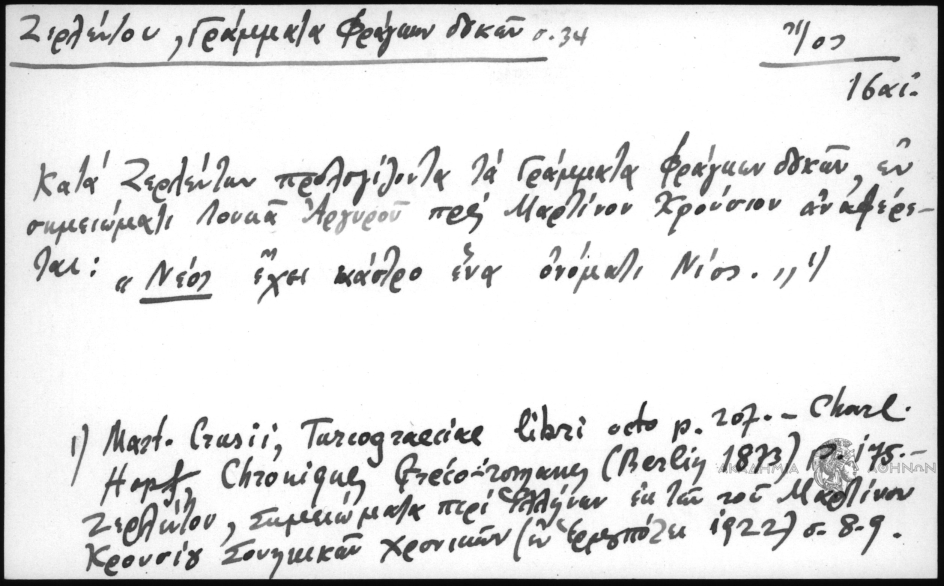 Ζερλέντου, Γράμματα Φράγκων δουκῶν σ. 34
Ἴος
16 αἰ.
Κατά Ζερλέντην προλογίζοντα τά Γράμματα Φράγκων δουκῶν, ἐν
σημειώματι Λουκᾶ Ἀργυροῦ πρός Μαρτῖνον Χρούσιον ἀναφέρε-
ται: « Νέος ἔχει κάστρο ἕνα ὀνόματι Νίος.,, 1)
1) Mart. Crusii, Turcograeciae libri octo p. 207. – Charl.
Hopf Chroniques Gréco-romanes (Berlin 1873) p. 175. –
ΑΚΑΔΗΜΙΑ ΑΘΗΝΩΝ
Ζερλέντου, Σημειώματα περί Ἑλλήνων ἐκ τῶν τοῦ Μαρτίνου
Κρουσίου Σουηκικῶν χρονικῶν (ἐν Ἑρμουπόλει 1922) σ. 8-9.